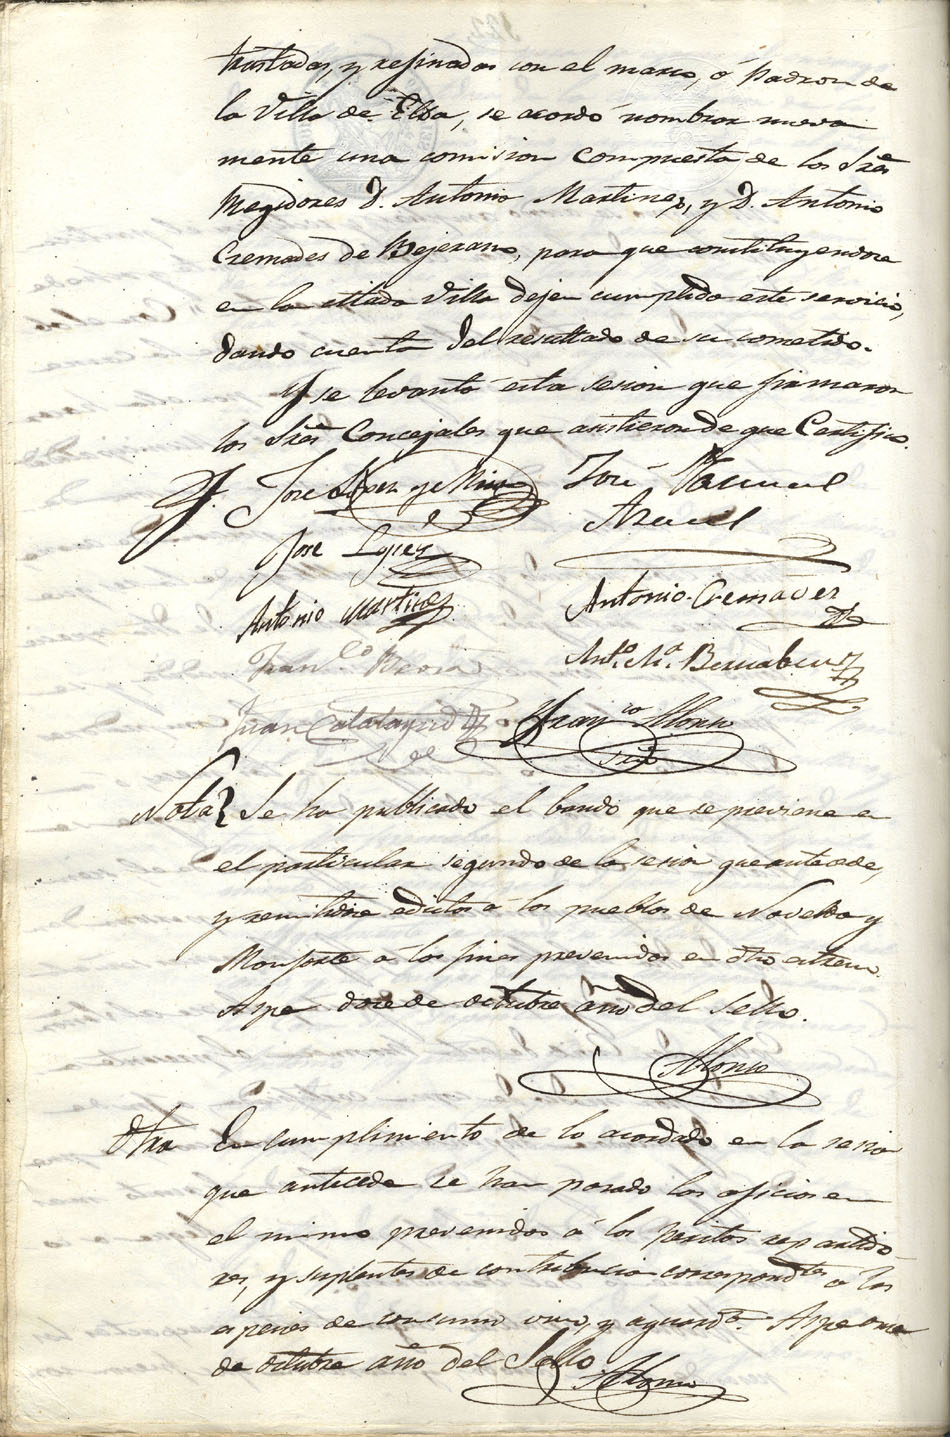 trastadas, y refinadas con el marco, ó Padron de
la Villa de Elda, se acordó nombrar nueva
mente una comision compuesta de los Sres
Regidores D. Antonio Martinez, y D. Antonio
Cremades de Bejerano, para que constituyendose
en la citada Villa dejen cumplido este servicio,
dando cuenta del resultado de su cometido.
Y se levantó esta sesion que firmaron
los Sres Concejales que asistieron de que Certifico.
José Lopez y José Pascual
Jose Lopez
Antonio Martinez Antonio Cremades
Franco Anto Ma Bernabeu
Juan Calatayud Franco Alonso
Srio
Nota Se ha publicado el bando que se previene en
el particular segundo de la sesion que antecede,
y remitidose edictos á los pueblos de Novelda y
Monforte á los fines prevenidos en otro estremo.
Aspe doce de octubre año del Sello.
Alonso
Otra En cumplimiento de lo acordado en la sesion
que antecede se han pasado los oficios en
el mismo prevenidos á los peritos repartido
res, y suplentes de contribucion correspondtes á las
especies de consumo vino, y aguardte. Aspe once
de octubre año del Sello
Alonso